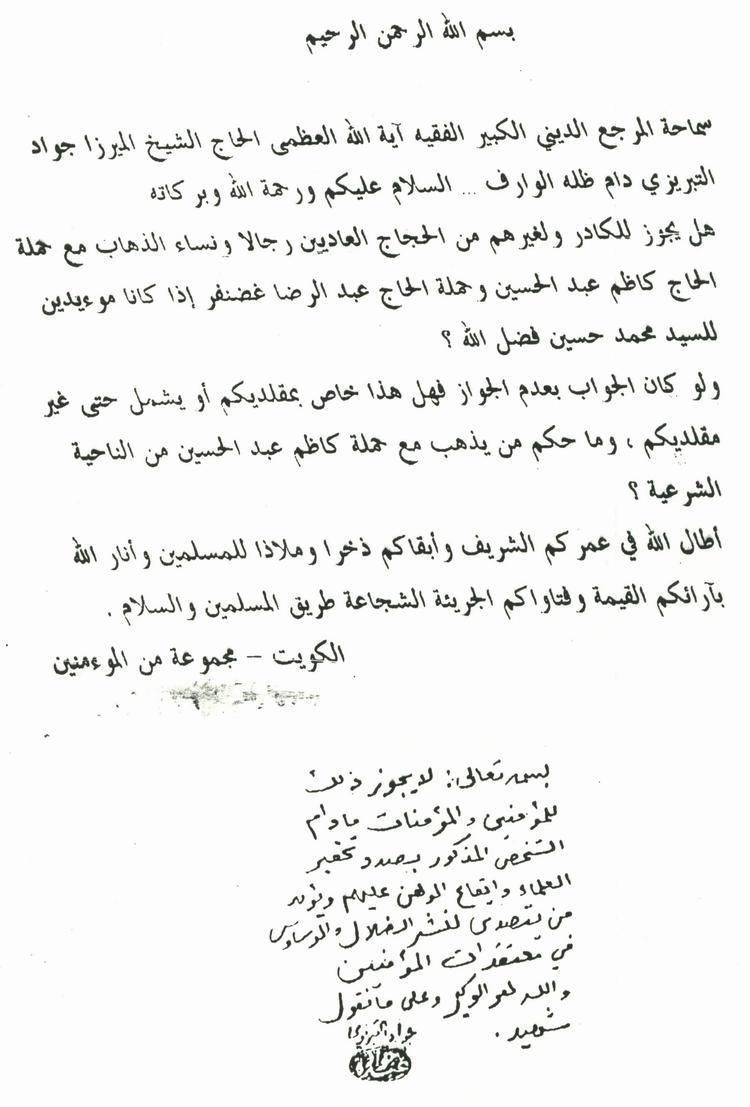 بسم الله الرحمن الرحيم
سماحة المرجع الديني الكبير الفقيه آية الله العظمى الحاج الشيخ الميرزا جواد
التبريزي دام ظله الوارف ... السلام عليكم ورحمة الله وبركاته
هل يجوز للكادر ولغيرهم من الحجاج العاديين رجالا ونساء الذهاب مع حملة
الحاج كاظم عبد الحسين وحملة الحاج عبد الرضا غضنفر إذا كانا موءيدين
للسيد محمد حسين فضل الله ؟
ولو كان الجواب بعدم الجواز فهل هذا خاص بمقلديكم أو يشمل حتى غير
مقلديكم ، وما حكم من يذهب مع حملة كاظم عبد الحسين من الناحية
الشرعية ؟
أطال الله في عمركم الشريف وأبقاكم ذخرا وملاذا للمسلمين وأنار الله
بآرائكم القيمة وفتاواكم الجريئة الشجاعة طريق المسلمين والسلام .
الكويت – مجموعة من الموءمنين
بسمه تعالى: لا يجوز ذلك
للمؤمنين والمؤمنات مادام
الشخص المذكور بصدد تحقير
العلماء وايقاع الوهن عليهم
من تصدى لنشر الضلال والوساوس
في معتقدات المؤمنين
والله الوكيل وعلى ما نقول
شهيد .
جواد التبريزي